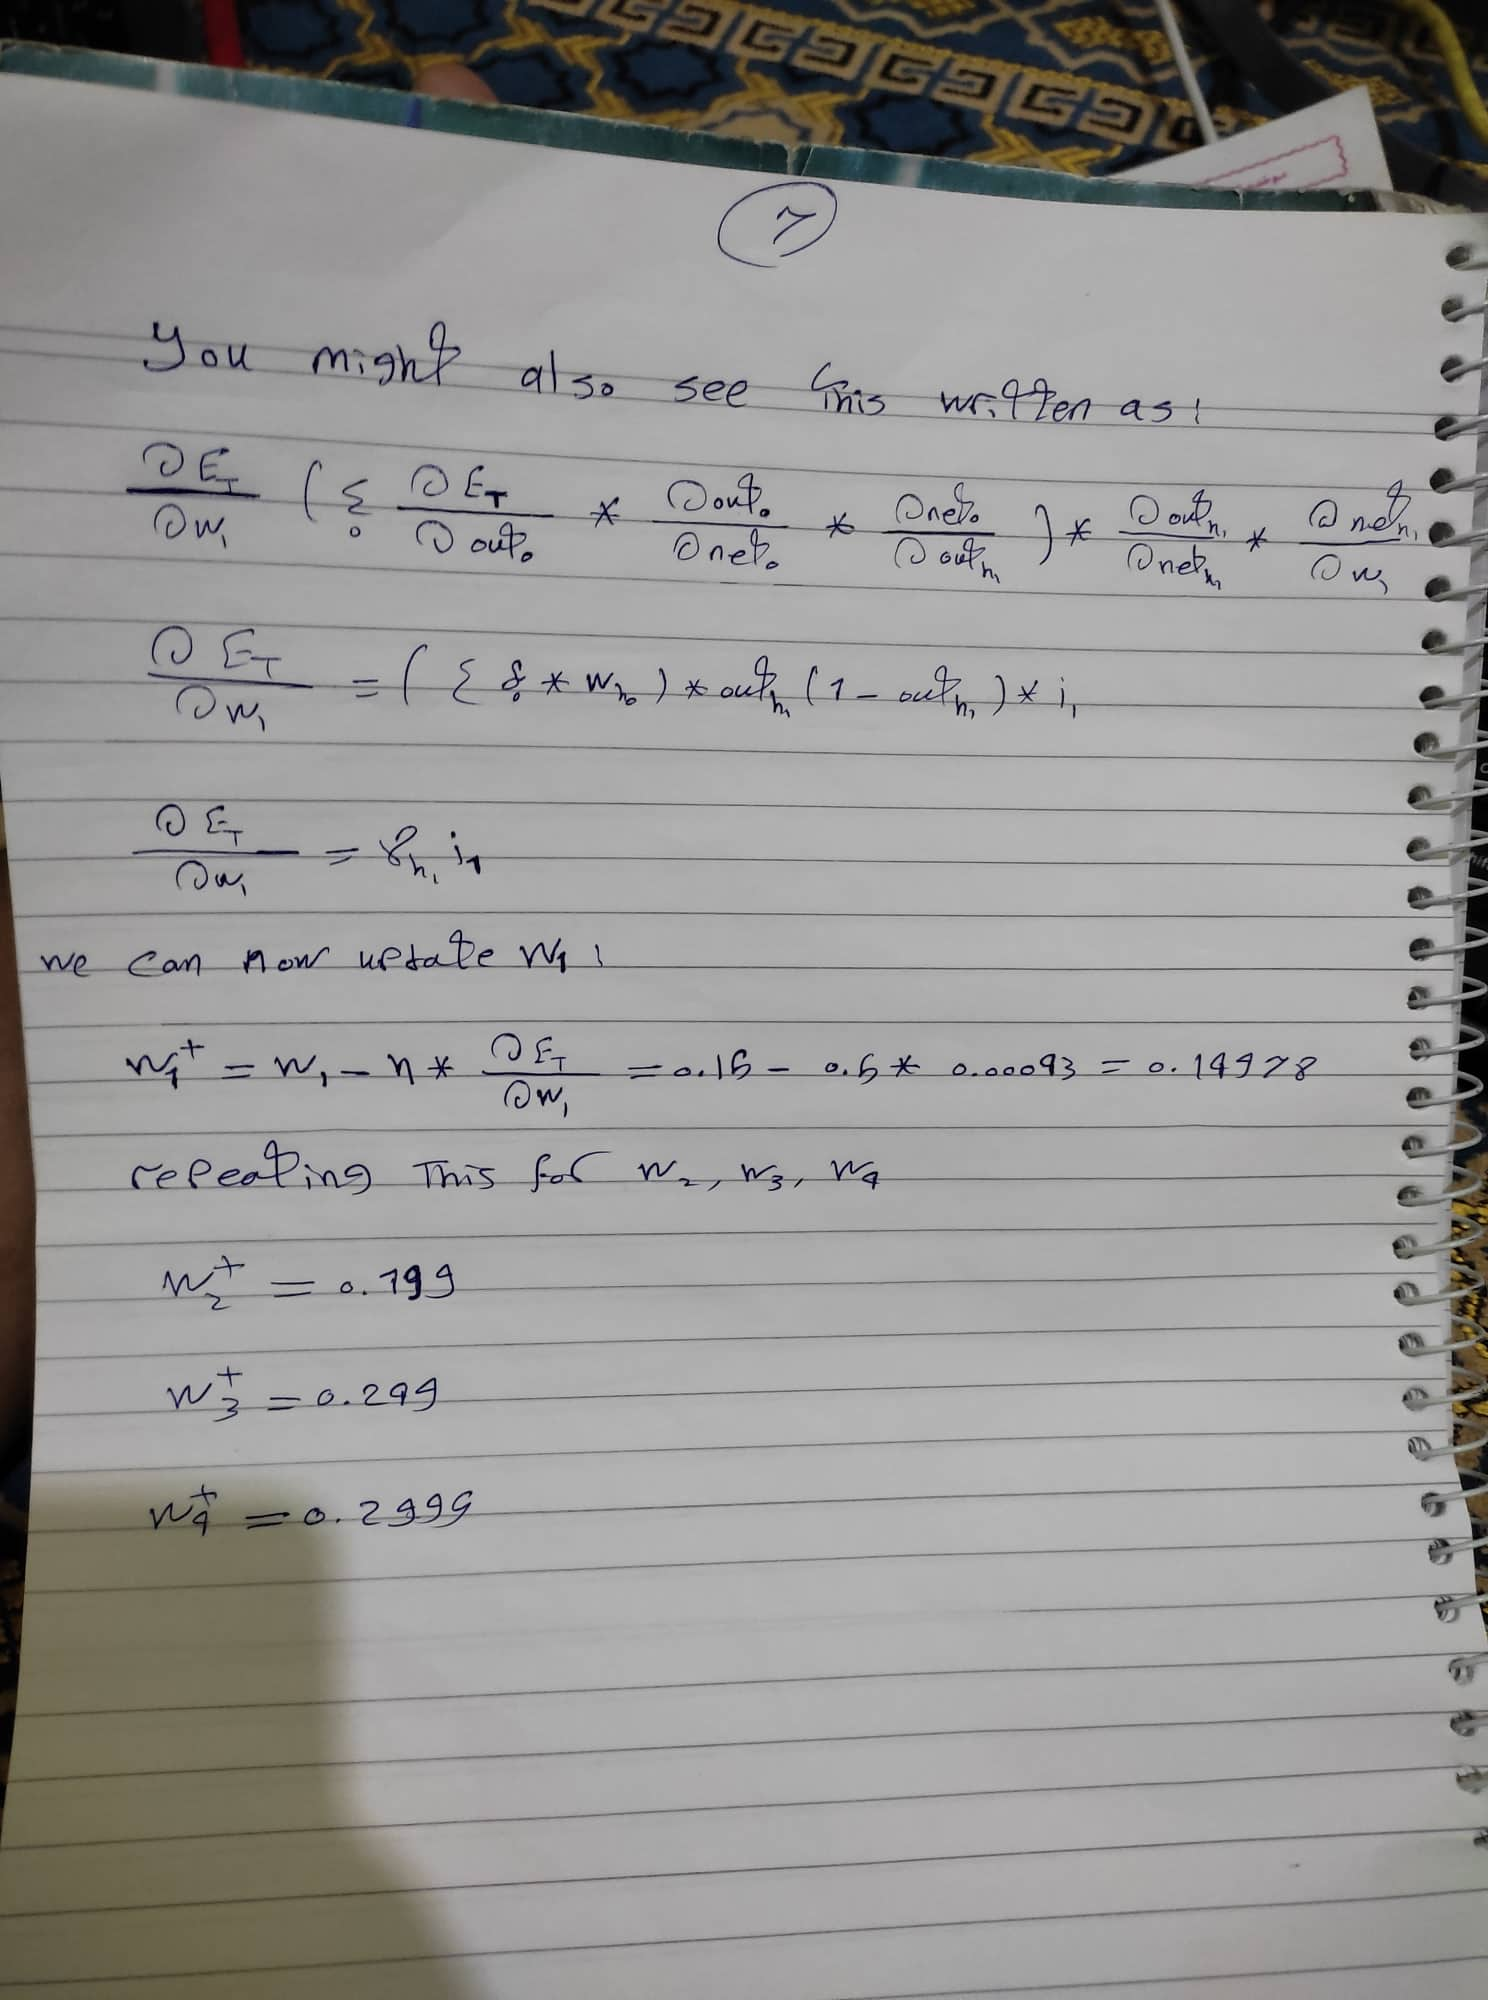 7
You might also see this written as:
∂E_T/∂w₁ (Σ_o ∂E_T/∂out_o * ∂out_o/∂net_o * ∂net_o/∂out_h₁) * ∂out_h₁/∂net_h₁ * ∂net_h₁/∂w₁
∂E_T/∂w₁ = (Σ δ_o * w_ho) * out_h₁ (1 - out_h₁) * i₁
∂E_T/∂w₁ = δ_h₁ i₁
we can now update w₁:
w₁⁺ = w₁ - η * ∂E_T/∂w₁ = 0.15 - 0.5 * 0.00093 = 0.14978
repeating This for w₂, w₃, w₄
w₂⁺ = 0.199
w₃⁺ = 0.299
w₄⁺ = 0.2999